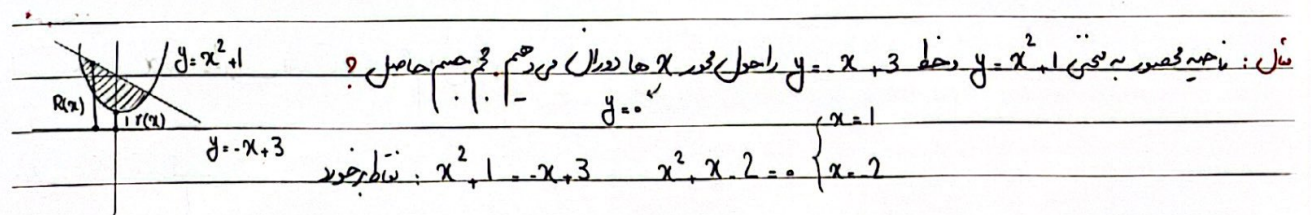 مثال : ناحیه محصور به منحنی y = x²+1 و خط y = -x+3 را حول محور x ها دوران می دهیم. حجم جسم حاصل ؟
y=0
y=x²+1
R(x)
r(x)
y=-x+3
نقاط برخورد : x²+1 = -x+3 x²+x-2=0 { x=1
x=-2